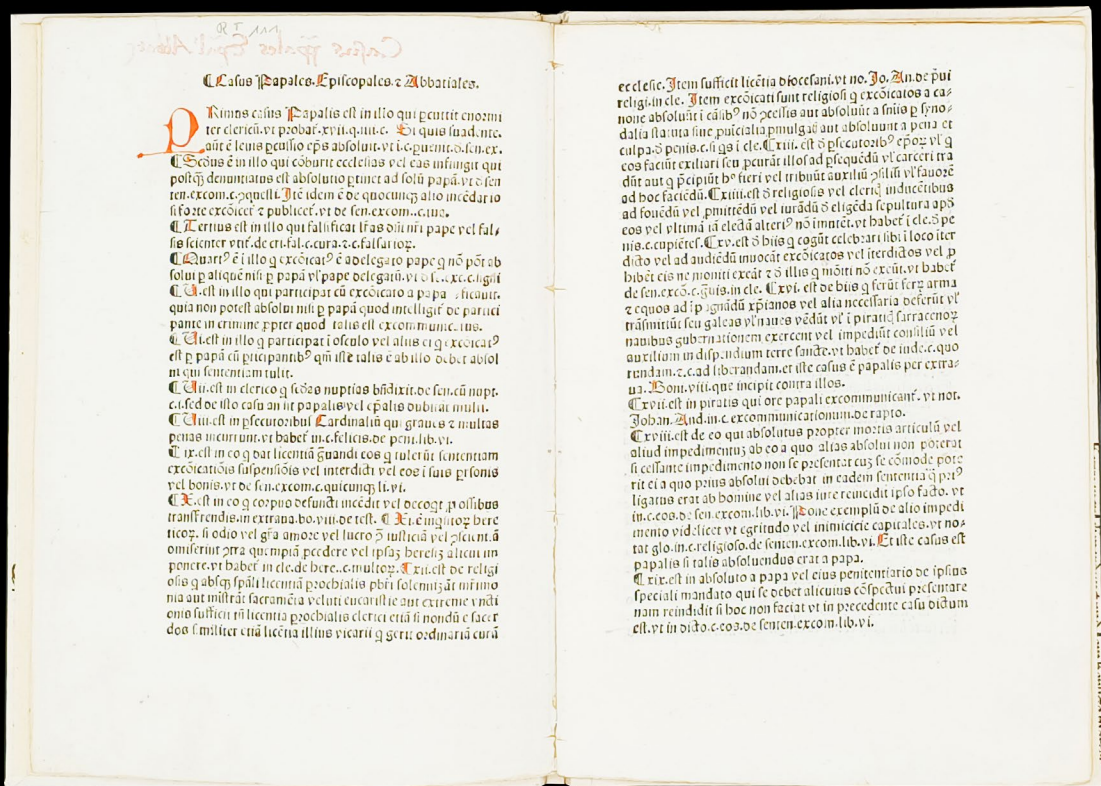 ¶ Casus Papales. Episcopales. ⁊ Abbatiales.
PRimus casus Papalis est in illo qui ꝑcuttit enormi
ter clericū. vt probat̄. xvii. q. iiii. c. Si quis suadente.
aūt ē leuis ꝑcussio ep̄s absoluit. vt i. c. ꝑuenit. ð. sen. ex.
¶ Scðus ē in illo qui cōburit ecclesias vel eas infringit qui
postꝙ̄ denuntiatus est absolutio ꝑtinet ad solū papā. vt ð sen
ten. excom. c. ꝯquesti. Itē idem ē de quocunqꝫ alio incēdario
si forte excōicet̄ ⁊ publicet̄. vt de sen. excom. c. tua.
¶ Tertius est in illo qui falsificat lr̄as dn̄i nr̄i pape vel fal⸗
sis scienter vtit̄. de cri. fal. c. cura. ⁊. c. falsarioꝝ.
¶ Quartꝰ ē ī illo q̄ excōicatꝰ ē a delegato pape q̄ nō pōt ab
solui ꝑ aliquē nisi ꝑ papā vl̓ pape delegatū. vt ð se. exc. c.
¶ V. est in illo qui participat cū excōicato a papa
quia non potest absolui nisi ꝑ papā quod intelligit̄ de partici
pante in crimine ꝓpter quod talis est
¶ Vi. est in illo q̄ participat ī osculo vel alias ei q̄ excōicatꝰ
est ꝑ papā cū ꝑticipantibꝰ qm̄ iste talis ē ab illo debet absol
ui qui sententiam tulit.
¶ Vii. est in clerico q̄ scðas nuptias bn̄dixit. de sen. cū nupt.
c. i. sed de isto casu an sit papalis vel ep̄alis dubitāt multi.
¶ Viii. est in ꝑsecutoribus Cardinaliū qui graues ⁊ multas
penas incurrunt. vt habet̄ in. c. felicis. de peni. lib. vi.
¶ ix. est in eo q̄ dat licentiā grauandi eos q̄ tulerūt sententiam
excōicatiōis suspensiōis vel interdicti vel eos ī suis ꝑsonis
vel bonis. vt de sen. excom. c. quicunqꝫ li. vi.
¶ X. est in eo q̄ corpus defuncti incēdit vel decoqt ꝓ ossibus
transferendis. in extraua. bo. viii. de test. ¶ Xi. ē inqisitoꝝ here
ticoꝝ. si odio vel gr̄a amore vel lucro ꝯ̄ iusticiā vel ꝯsciam. ā
omiserint ꝯtra quempiā ꝓcedere vel ipsaꝫ heresiꝫ alicui im
ponere. vt habet̄ in cle. de here. c. multoꝝ. Xii. est de religi
osis q̄ absqꝫ sp̄ali licentiā ꝑrochialis pbr̄i solemnizāt mr̄imo
nia aut mīstrāt sacramēta veluti eucaristie aut extreme vncti
onis sufficit tn̄ licentia ꝑrochialis clerici etiā si nondū ē sacer
dos similiter etiā licētia illius vicarii q̄ gerit ordinariā curā
ecclesie. Item sufficit licētia diocesani. vt no. Jo. An. de p̄ui
religi. in cle. Item excōicati sunt religiosi q̄ excōicatos a ca⸗
none absoluūt ī casibꝰ nō ꝯcessis aut absoluūt a sniis ꝑ syno⸗
dalia statuta siue ꝓuīcialia ꝓmulgatꝭ aut absoluunt a pena et
culpa. ð penis. c. si qs ī cle. Cxiii. est ð ꝑsecutoribꝰ ep̄oꝝ vl̓ q̄
eos faciūt exiliari seu ꝓcurāt illos ad ꝑsequēdū vl̓ carceri tra
dūt aut q̄ p̄cipiūt hꝰ fieri vel tribuūt auxiliū ꝯsiliū vl̓ fauorē
ad hoc faciēdū. Cxiiii. est ð religiosis vel clericꝭ inducētibus
ad fouēdū vel ꝓmittēdū vel iurādū ð eligēda sepultura apð
eos vel vltima iā electā alteriꝰ nō imutēt. vt habet̄ ī cle. ð pe
nis. c. cupiētes. Cxv. est ð hiis q̄ cogūt celebrari sibi ī loco iter
dicto vel ad audiēdū inuocāt excōicatos vel īterdictos vel ꝓ
hibēt eis ne moniti exeāt ⁊ ð illis q̄ moīti nō exeūt. vt habet̄
de sen. excō. c. grauis. in cle. Cxvi. est de hiis q̄ ferūt ferꝝ arma
⁊ equos ad īpugnādū xp̄ianos vel alia necessaria deferūt vl̓
trāsmittūt seu galeas vl̓ naues vēdūt vl̓ ī piraticꝭ sarracenoꝝ
nauibus gubernationem exercent vel impediūt consiliū vel
auxilium in dispendium terre sancte. vt habet̄ de iude. c. quo
rundam. ⁊. c. ad liberandam. et iste casus ē papalis per extra⸗
ua. Boni. viii. que incipit contra illos.
Cxvii. est in piratis qui ore papali excommunicant̄. vt not.
Johan. And. in. c. excommunicationum. de rapto.
Cxviii. est de eo qui absolutus propter mortis articulū vel
aliud impedimentuꝫ ab eo a quo alias absolui non poterat
si cessante impedimento non se presentat cuꝫ se cōmode pote
rit ei a quo prius absolui debebat in eadem sententia q̄ priꝰ
ligatus erat ab homine vel alias iure reincidit ipso facto. vt
in. c. eos. de sen. excom. lib. vi. Pone exemplū de alio impedi
mento videlicet vt egritudo vel inimicicie capitales. vt no⸗
tat glo. in. c. religioso. de senten. excom. lib. vi. Et iste casus est
papalis si talis absoluendus erat a papa.
Cxix. est in absoluto a papa vel eius penitentiario de ipsius
speciali mandato qui se debet alicuius cōspectui presentare
nam reindidit si hoc non faciat vt in precedente casu dictum
est. vt in dicto. c. eos. de senten. excom. lib. vi.